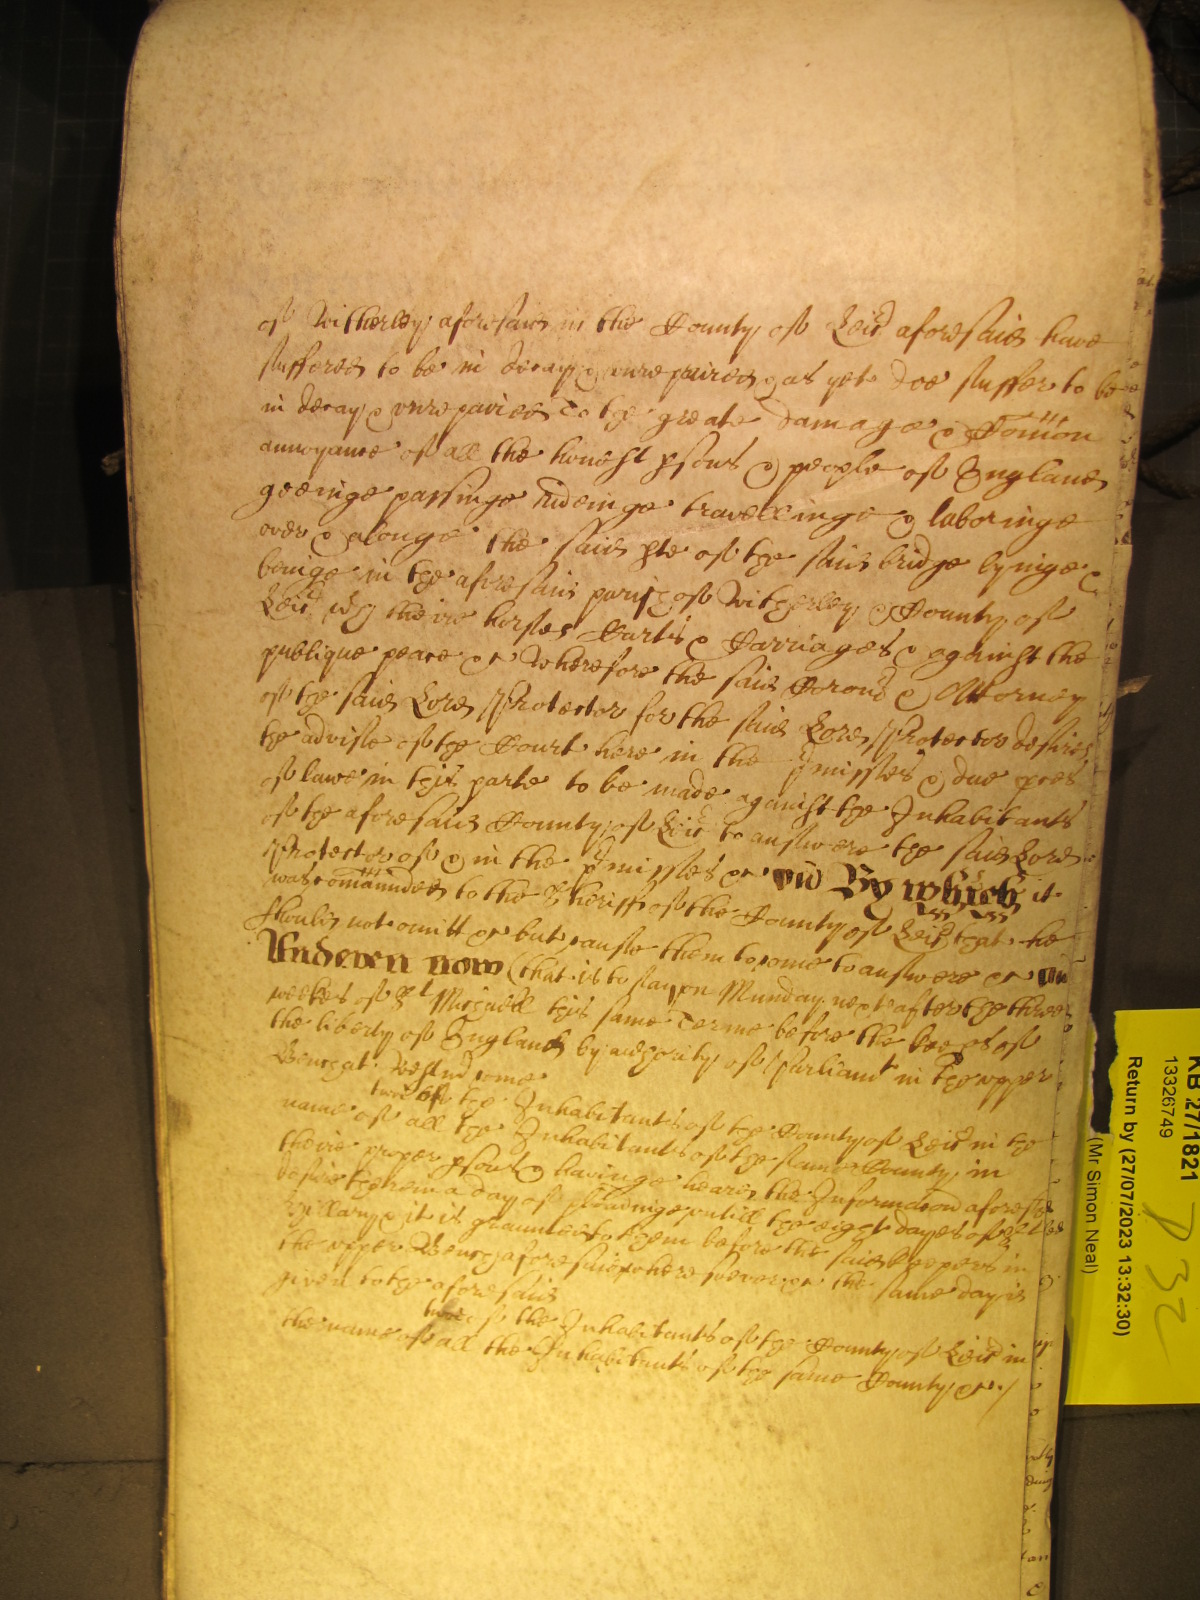 of Witherley aforesaid in the County of Leic̃ aforesaid have
suffered to be in decay & unrepaired & as yet doe suffer to be
in decay & vnrepaired To the greate damage & Com̃on
annoyance of all the honest psons & people of England
goeinge passinge rideinge travellinge & laboringe
over & alonge the said pte of the said bridge lyinge &
beinge in the aforesaid parish of Witherley & County of
Leic̃ wth theire horses Carts & Carriages & against the
publique peace &c Wherefore the said Coron̄ & Attorney
of the said Lord Protector for the said Lord Protector desires
the advise of the Court here in the p̃misses & due p̱ces
of lawe in this parte to be made against the Inhabitants
of the aforesaid County of Leic̃ to answere the said Lord
Protector of & in the p̃misses &c By which it
was com̃aunded to the Sheriff of the County of Leic̃ that he
should not omitt &c but cause them to come to answere &c
And even now (that is to say on Munday next after the three
weekes of St Michaell this same Terme before the keep̱s of
the liberty of England by authority of Parliamt in the upper
Bench at Westm̃ come
two of the Inhabitants of the County of Leic̃ in the
name of all the Inhabitants of the same County in
theire proper psons & havinge heard the Informac̃on aforesd
desire to them a day of pleadinge untill the eight dayes of St
Hyllary & it is graunted to them before the said keepers in
the upper Bench aforesaid wheresoever &c the same day is
given to the aforesaid
two of the Inhabitants of the County of Leic̃ in
the name of all the Inhabitants of the same County &c./
KB 27/1821
13326749
Return by (27/07/2023 13:32:30)
(Mr Simon Neal)
D 32